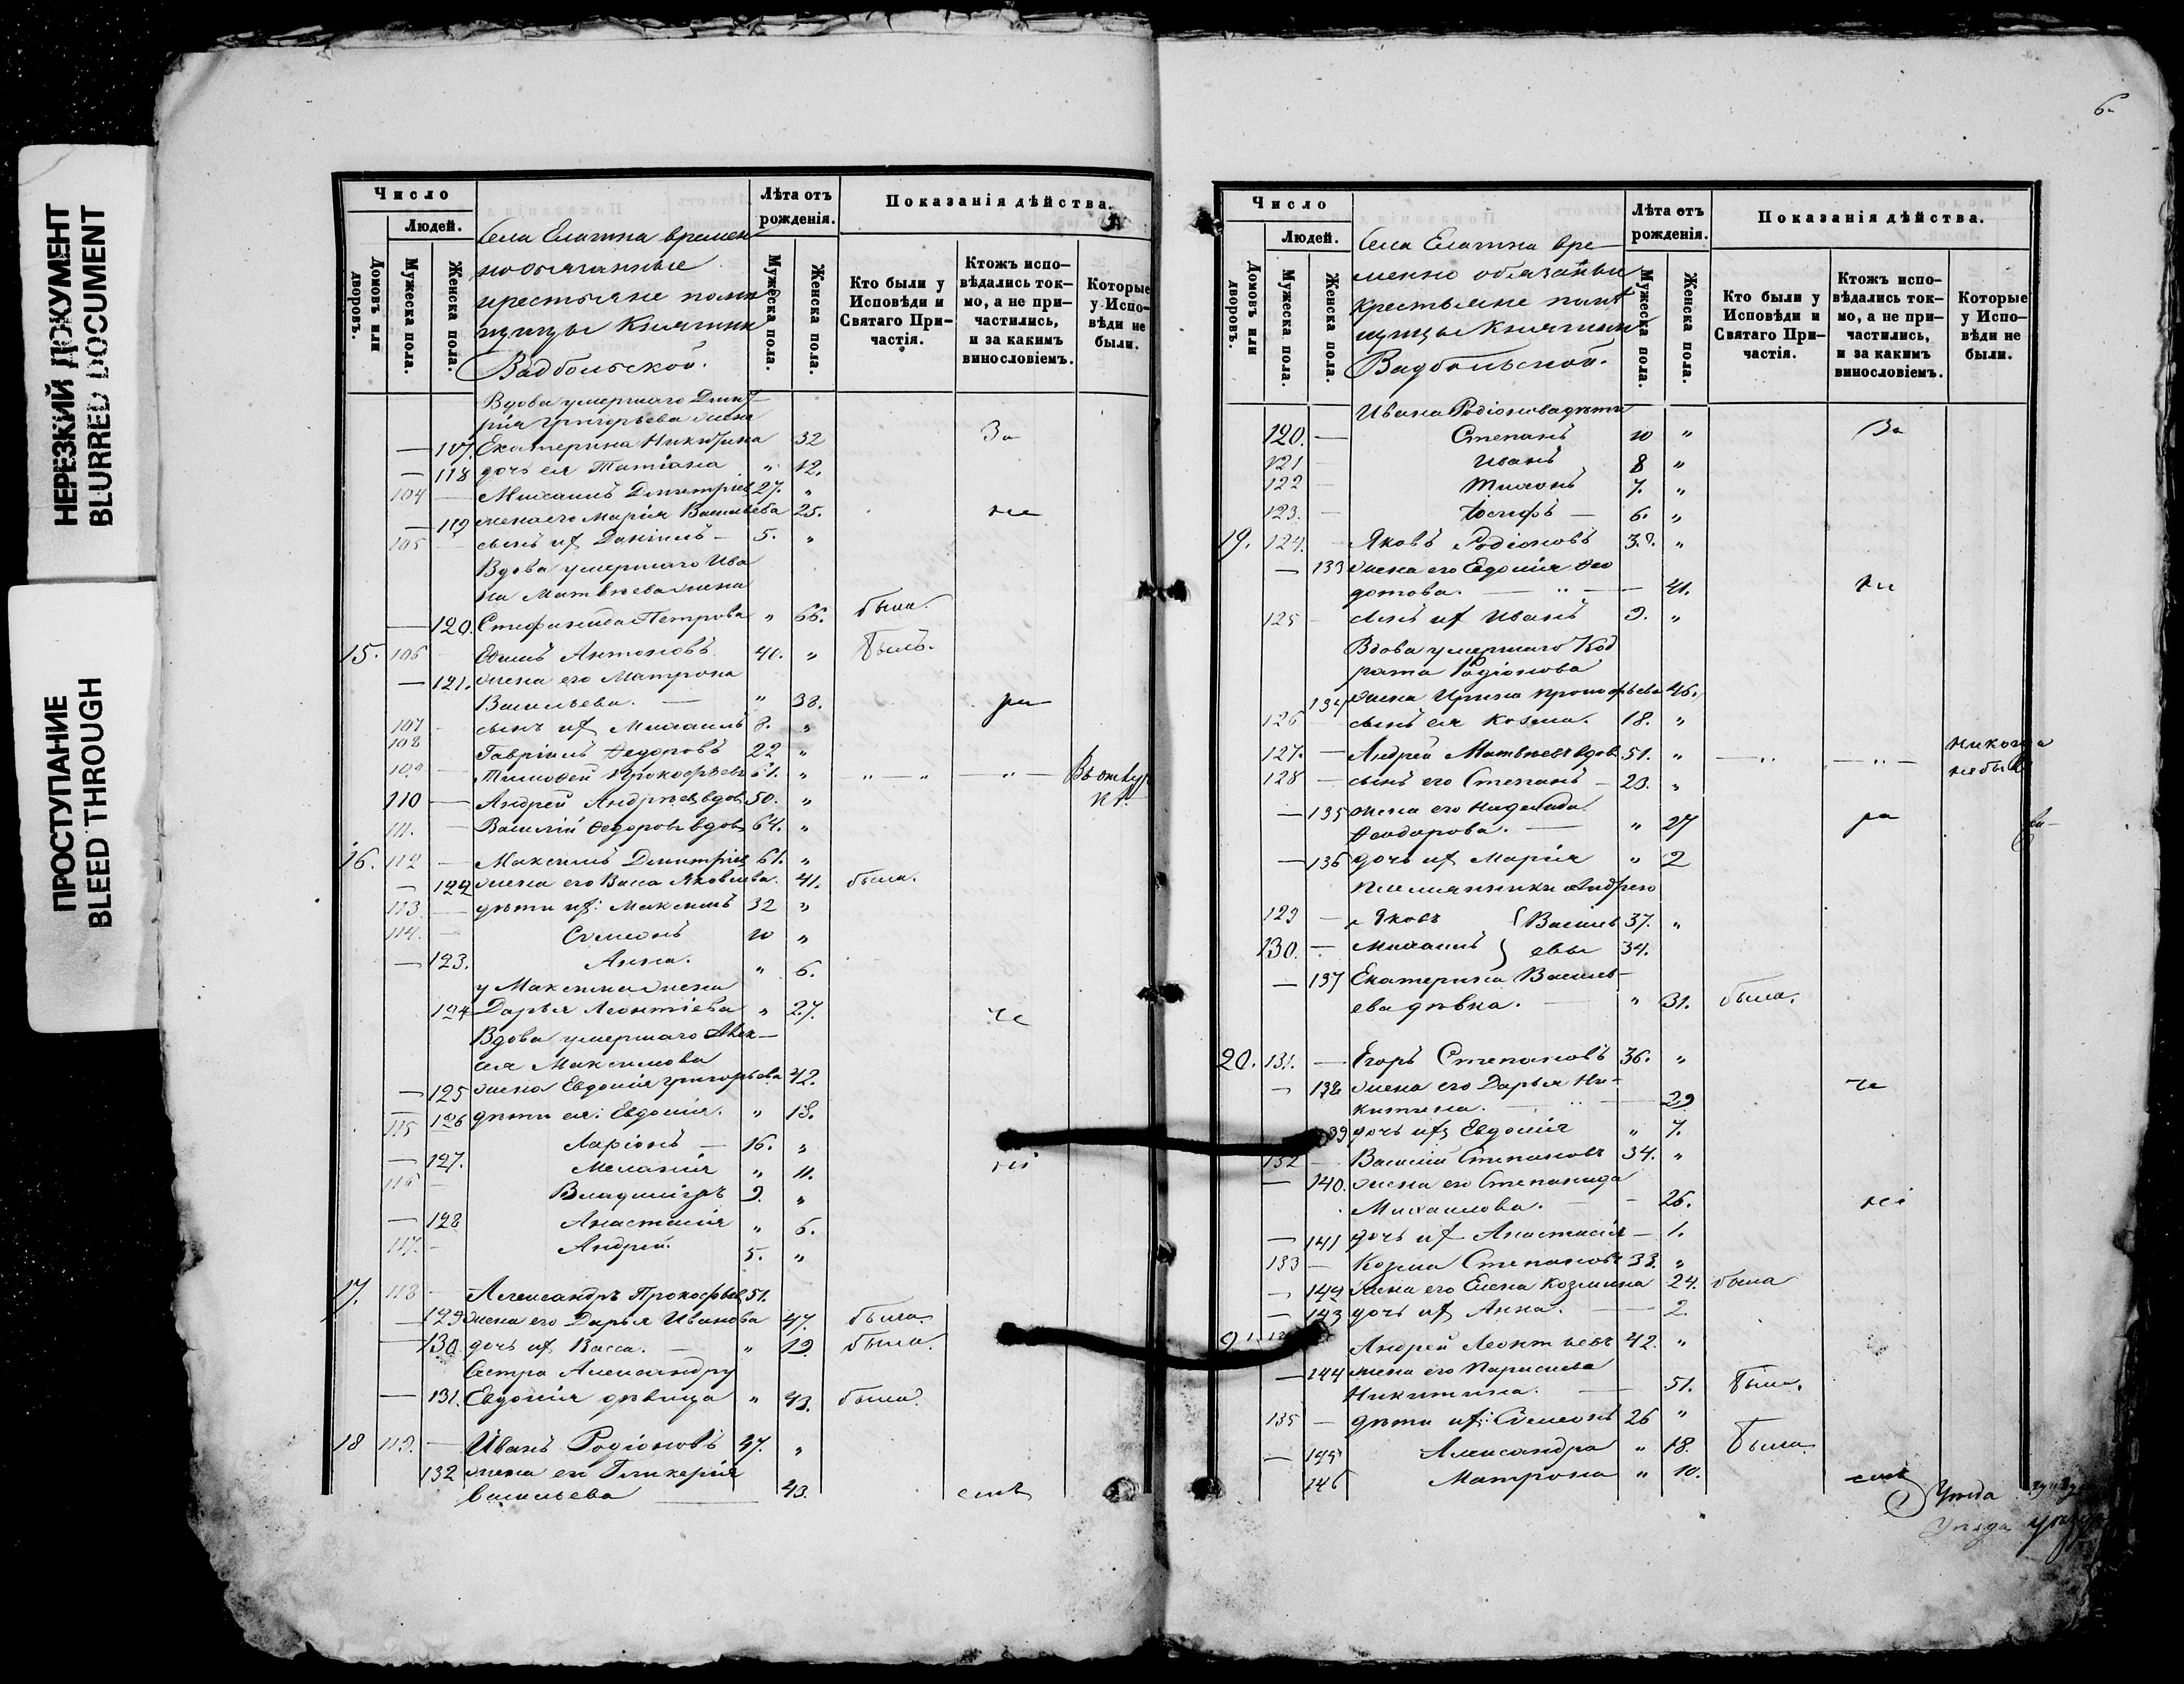 НЕРЕЗКИЙ ДОКУМЕНТ
BLURRED DOCUMENT
ПРОСТУПАНИЕ
BLEED THROUGH
Число
Людей.
Домовъ или дворовъ.
Мужеска пола.
Женска пола.
Села Елагина времен
нообязанные
крестьяне поме
щицы Княгини
Вадбольской.
Лѣта отъ рожденія.
Мужеска пола.
Женска пола.
Показанія дѣйства.
Кто были у Исповѣди и Святаго Причастія.
Ктожъ исповѣдались токмо, а не причастились, и за какимъ винословіемъ.
Которые у Исповѣди не были.
Вдова умершаго Дмит
рія Григорьева жена
— 117. Екатерина Никитина 32 За
— 118 дочь ея Татіана " 12.
104 — Михаилъ Димитріев 27. "
— 119 жена его Марія Васильева 25. не
105 — сынъ их Даніилъ — 5. "
Вдова умершаго Ива
на Матвѣева жена
— 120. Стефанида Петрова " 66. была.
15. 106 Антоновъ 40. " былъ.
— 121. жена его Матрона
Васильева. — " 38. ра
107 — сынъ их Михаилъ 8. "
108 Гавріилъ Ѳедоровъ 22 "
109 — Тимоѳей Прокофьевъ 61. " " — " — " —
110 — Андрей Андреев вдов 50. "
111. — Василій Ѳедоровъ вдов 64. "
16. 112 — Максимъ Димитріев 61. "
— 122 жена его Васса Яковлева. 41. была.
113 — дѣти их: Максимъ 32 "
114. — Симеонъ 10 "
— 123. Анна. " 6.
у Максима жена
124 Дарья Леонтіева " 27. че
Вдова умершаго Алек—
сея Максимова
— 125 жена Евдокія Григорьева 42.
— 126 дѣти ея: Евдокія. " 18.
115 Ларіонъ — 16. "
— 127. Меланія " 11. ні
116 — Владиміръ 9. "
— 128 Анастасія " 6.
117. — Андрей. 5. "
17. 118 — Александръ Прокофьев 51.
— 129 жена его Дарья Иванова 47. была
— 130 дочь их Васса. — " 19. была.
Сестра Александру
— 131. Евдокія дѣвица " 43. была.
18 119. — Иванъ Родіоновъ 47. "
132 жена его Гликерія
Васильева — 43. емъ
6
Число
Людей.
Домовъ или дворовъ.
Мужеска пола.
Женска пола.
Села Елагина вре—
менно обязанные
крестьяне помѣ
щицы Княгини
Вадбольской.
Лѣта отъ рожденія.
Мужеска пола.
Женска пола.
Показанія дѣйства.
Кто были у Исповѣди и Святаго Причастія.
Ктожъ исповѣдались токмо, а не причастились, и за какимъ винословіемъ.
Которые у Исповѣди не были.
Ивана Родіонова дѣти
120. — Степанъ 10 " За
121 — Иванъ 8 "
122 — Тихонъ 7. "
123. — Іосифъ — 6. "
19. 124. — Яковъ Родіоновъ 39. "
— 133 жена его Евдокія Ѳео
дотова. — " — 41. не
125 — сынъ их Иванъ 9. "
Вдова умершаго Код
рата Родіонова
134 жена Ирина Прокофьева 46.
126 — сынъ ея Козма. 18. "
127. — Андрей Матвѣевъ вдов 51. " — " — " — никогда
128 — сынъ его Степанъ — 20. " не былъ
— 135 жена его Надежда
Ѳеодорова. — " 27 ра
— 136 дочь их Марія " 2
племянники Андрею
129 — Яковъ } Василь 37. "
130. — Михаилъ } евы 34.
— 137 Екатерина Василь—
ева дѣвка. — " 31. была.
20. 131. — Егоръ Степановъ 36. "
— 138 жена его Дарья Ни—
китина. — " — 29 че
39 дочь их Евдокія " 7.
132 — Василій Степановъ 34. "
— 140. жена его Степанида
Михаилова. — 26. ні
— 141 дочь их Анастасія — 1.
133 — Козма Степановъ 33. "
— 142 жена его Елена Козмина 24. была
— 143 дочь их Анна. — 2.
Андрей Леонтьевъ 42. "
— 144 жена его Параскева
Никитина. — 51. была.
135 — дѣти их: Симеонъ 26 "
— 145 Александра " 18. была.
146 Матрона " 10. емъ